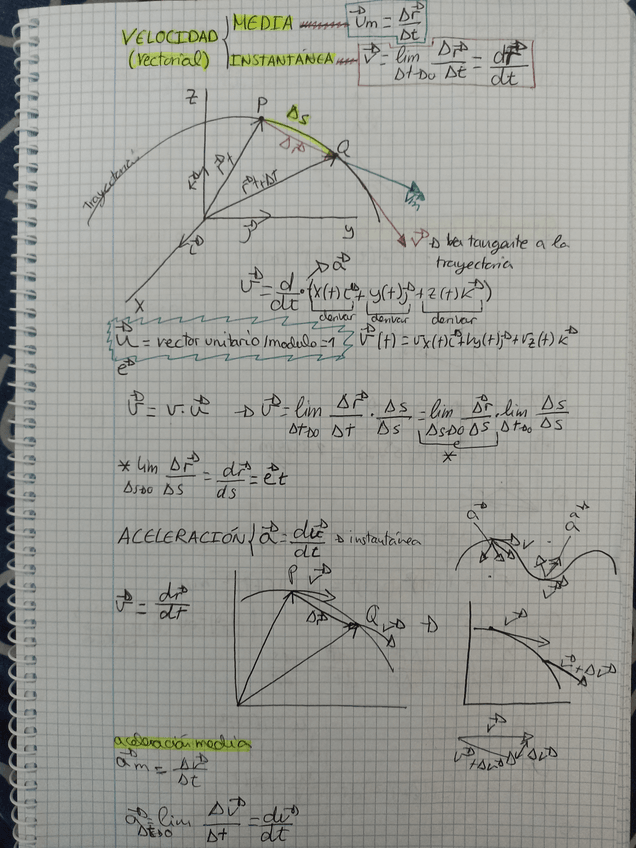 VELOCIDAD (vectorial)
MEDIA v⃗m = Δr⃗/Δt
INSTANTÁNEA v⃗ = lim Δt→0 Δr⃗/Δt = dr⃗/dt
Z P Δs
Δr⃗ Q
Trayectoria r⃗t r⃗t+Δt v⃗m
k⃗
i⃗ j⃗ y v⃗ → es tangante a la
trayectoria
X
→ a⃗
v⃗ = d/dt · (x(t)i⃗ + y(t)j⃗ + z(t)k⃗)
derivar derivar derivar
u⃗ = vector unitario/modulo=1 v⃗(t) = vx(t)i⃗ + vy(t)j⃗ + vz(t)k⃗
e⃗
v⃗ = v·u⃗ → v⃗ = lim Δt→0 Δr⃗/Δt · Δs/Δs = lim Δs→0 Δr⃗/Δs · lim Δt→0 Δs/Δs
e
*
* lim Δs→0 Δr⃗/Δs = dr⃗/ds = e⃗t
ACELERACIÓN { a⃗ = dv⃗/dt → instantánea
a⃗ v a⃗
v⃗
v⃗ = dr⃗/dt
P v⃗
Δr⃗ Q v⃗ →
v⃗
v⃗+Δv⃗
v⃗
v⃗+Δv⃗ Δv⃗
aceleración media
a⃗m = Δv⃗/Δt
a⃗ = lim Δt→0 Δv⃗/Δt = dv⃗/dt